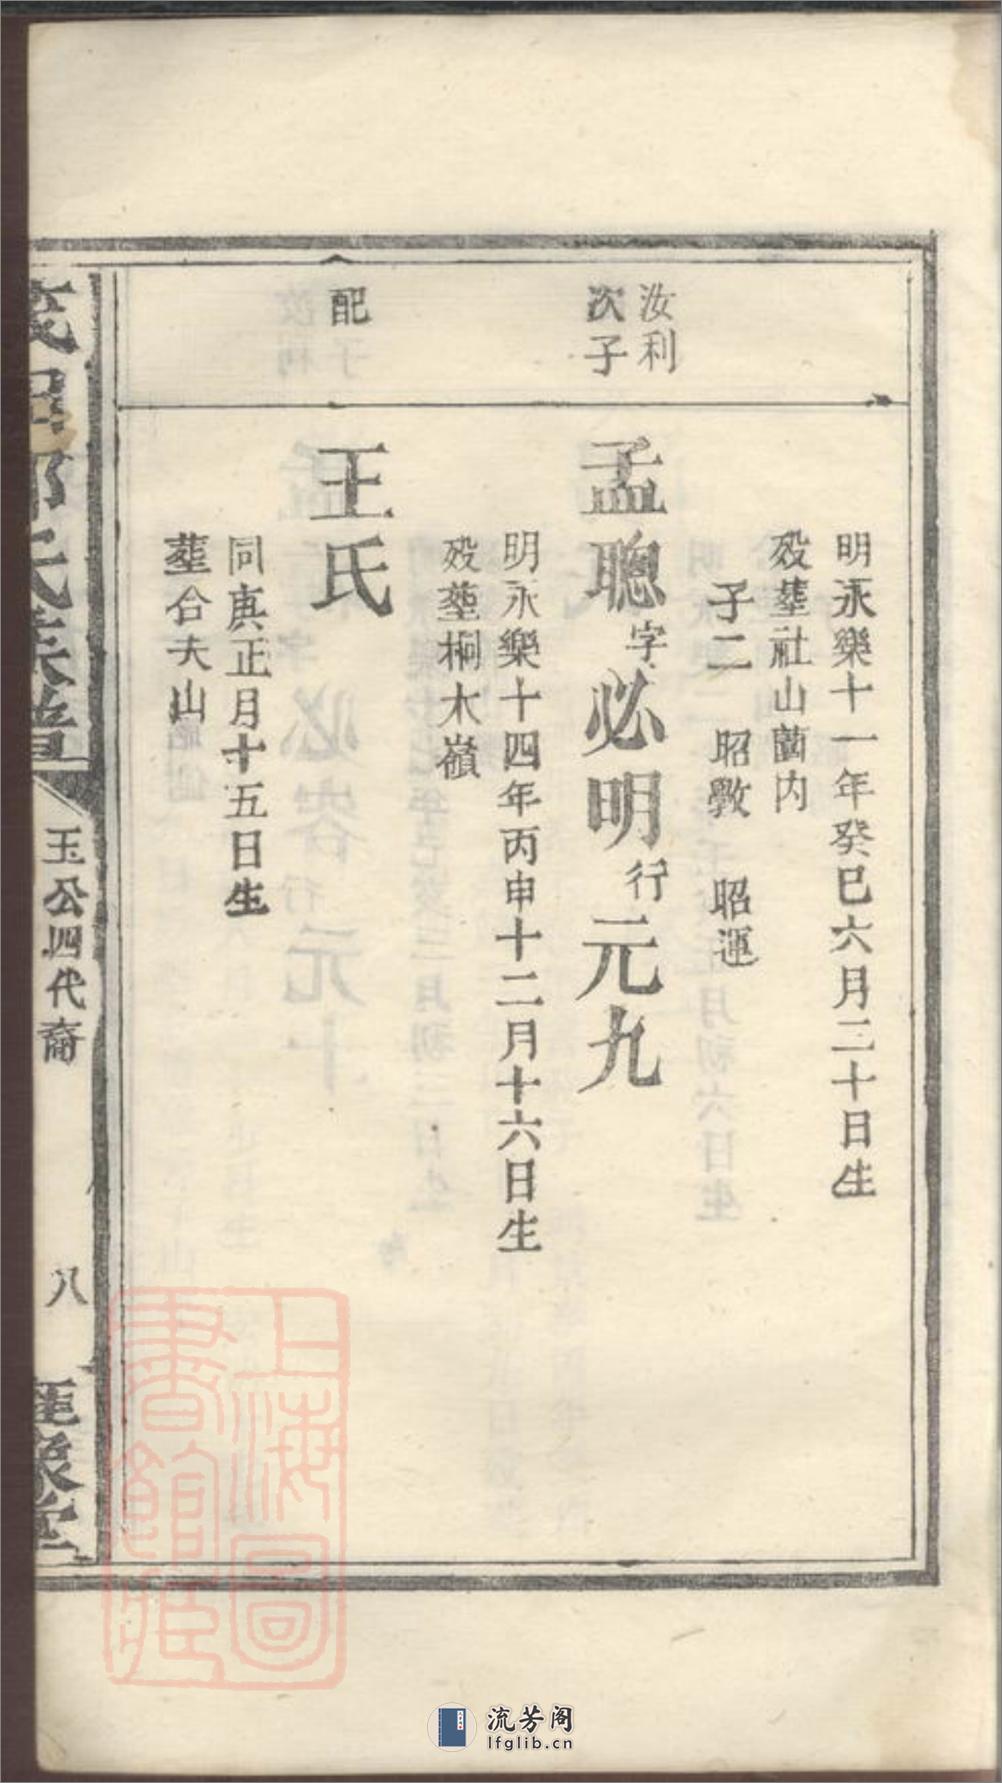 明永樂十一年癸巳六月二十日生
歿塟社山薗內
子二 昭斆 昭運
汝利
次子
孟聰字必明行元九
明永樂十四年丙申十二月十六日生
歿塟桐木嶺
配
王氏
同庚正月十五日生
塟合夫山
氏族譜
玉公四代裔
八
堂
上海圖
書館藏
流芳阁
lfglib.cn